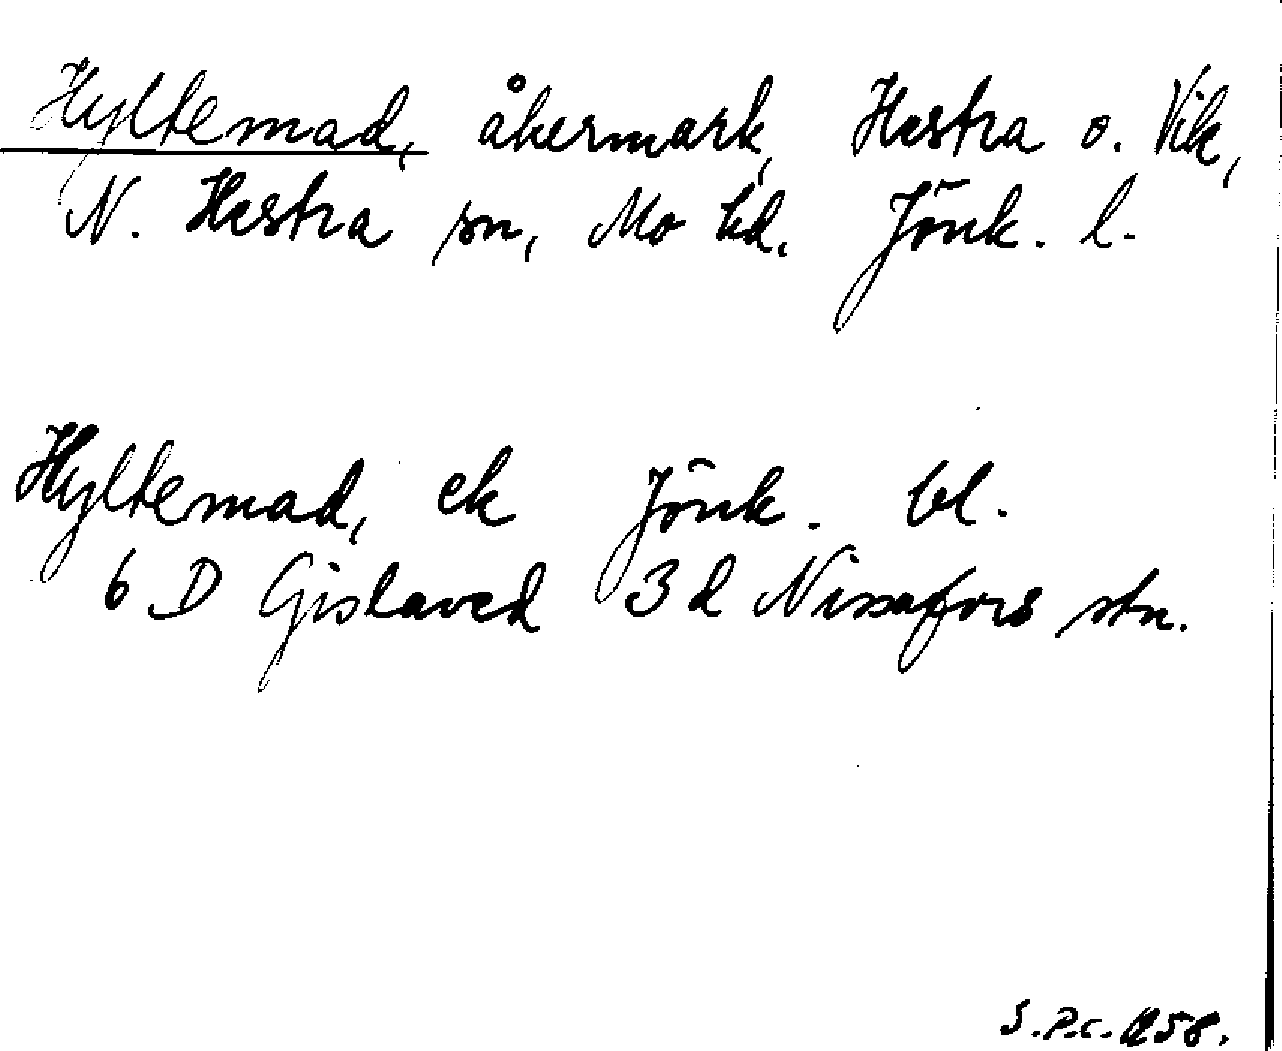 Hyltemad, åkermark, Hestra o. Vik,
N. Hestra sn, Mo hd. Jönk. l.
Hyltemad, ek Jönk. bl.
6 D Gislaved 3 d Nissafors stn.
S.P.C. 1958.